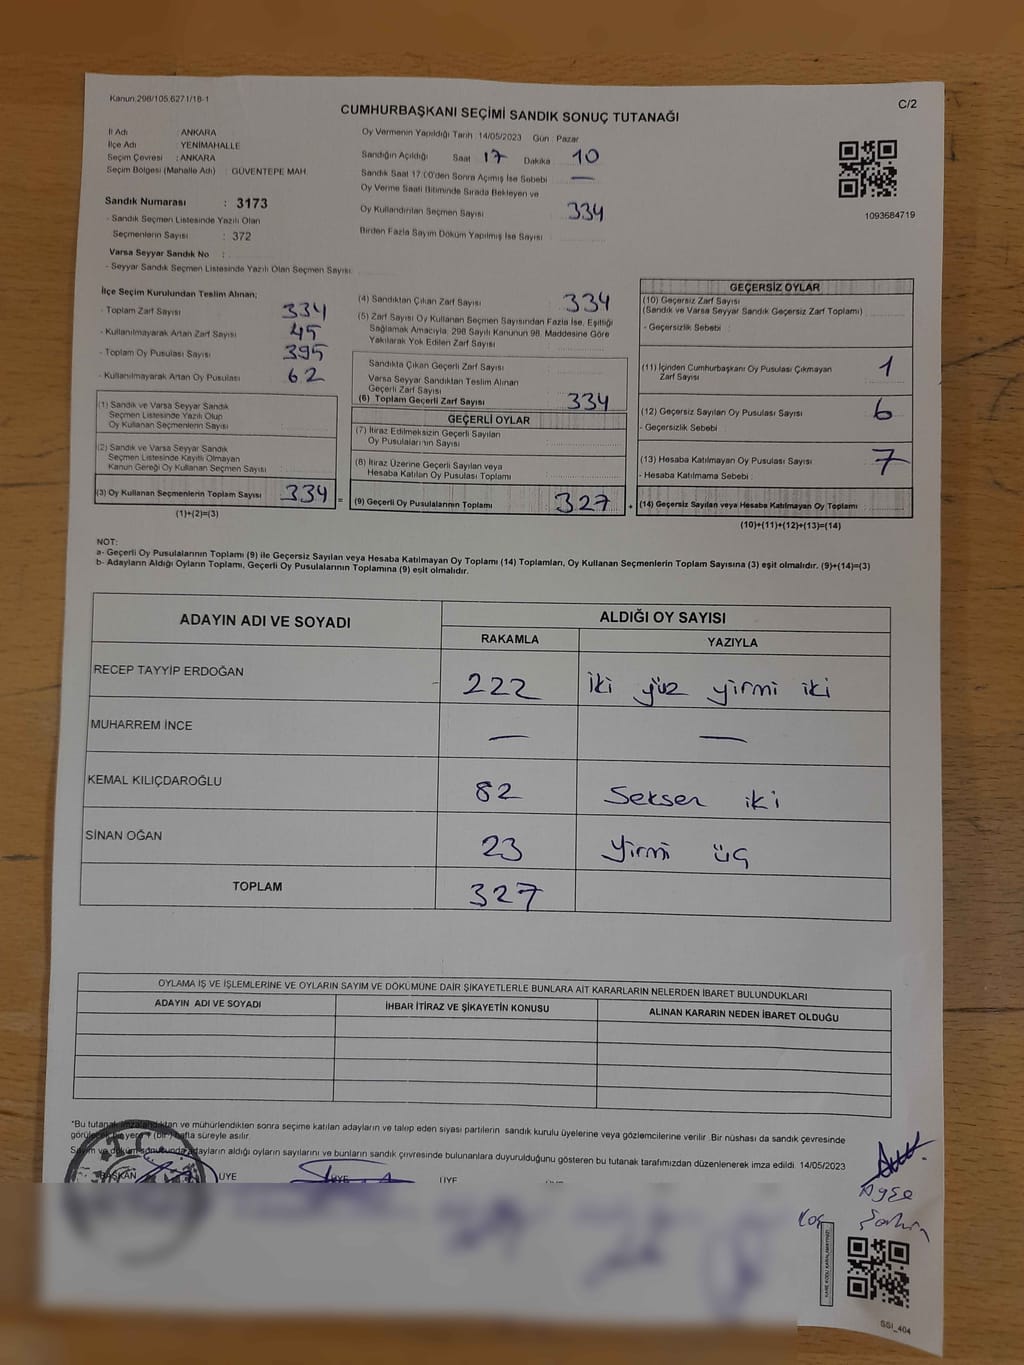 Kanun:298/105.6271/18-1
C/2
CUMHURBAŞKANI SEÇİMİ SANDIK SONUÇ TUTANAĞI
İl Adı : ANKARA
İlçe Adı : YENİMAHALLE
Seçim Çevresi : ANKARA
Seçim Bölgesi (Mahalle Adı) : GÜVENTEPE MAH.
Sandık Numarası : 3173
- Sandık Seçmen Listesinde Yazılı Olan
Seçmenlerin Sayısı : 372
Varsa Seyyar Sandık No :
- Seyyar Sandık Seçmen Listesinde Yazılı Olan Seçmen Sayısı:
Oy Vermenin Yapıldığı Tarih : 14/05/2023 Gün : Pazar
Sandığın Açıldığı Saat 17 Dakika 10
Sandık Saat 17:00'den Sonra Açılmış İse Sebebi —
Oy Verme Saati Bitiminde Sırada Bekleyen ve
Oy Kullandırılan Seçmen Sayısı 334
Birden Fazla Sayım Döküm Yapılmış İse Sayısı
1093684719
İlçe Seçim Kurulundan Teslim Alınan;
- Toplam Zarf Sayısı 334
- Kullanılmayarak Artan Zarf Sayısı 45
- Toplam Oy Pusulası Sayısı 395
- Kullanılmayarak Artan Oy Pusulası 62
(1) Sandık ve Varsa Seyyar Sandık
Seçmen Listesinde Yazılı Olup
Oy Kullanan Seçmenlerin Sayısı
(2) Sandık ve Varsa Seyyar Sandık
Seçmen Listesinde Kayıtlı Olmayan
Kanun Gereği Oy Kullanan Seçmen Sayısı
(3) Oy Kullanan Seçmenlerin Toplam Sayısı 334 =
(1)+(2)=(3)
(4) Sandıktan Çıkan Zarf Sayısı 334
(5) Zarf Sayısı Oy Kullanan Seçmen Sayısından Fazla İse, Eşitliği
Sağlamak Amacıyla, 298 Sayılı Kanunun 98. Maddesine Göre
Yakılarak Yok Edilen Zarf Sayısı
Sandıkta Çıkan Geçerli Zarf Sayısı
Varsa Seyyar Sandıktan Teslim Alınan
Geçerli Zarf Sayısı
(6) Toplam Geçerli Zarf Sayısı 334
GEÇERLİ OYLAR
(7) İtiraz Edilmeksizin Geçerli Sayılan
Oy Pusulalarının Sayısı
(8) İtiraz Üzerine Geçerli Sayılan veya
Hesaba Katılan Oy Pusulaları Toplamı
(9) Geçerli Oy Pusulalarının Toplamı 327 +
GEÇERSİZ OYLAR
(10) Geçersiz Zarf Sayısı
(Sandık ve Varsa Seyyar Sandık Geçersiz Zarf Toplamı)
- Geçersizlik Sebebi :
(11) İçinden Cumhurbaşkanı Oy Pusulası Çıkmayan
Zarf Sayısı 1
(12) Geçersiz Sayılan Oy Pusulası Sayısı 6
- Geçersizlik Sebebi :
(13) Hesaba Katılmayan Oy Pusulası Sayısı 7
- Hesaba Katılmama Sebebi :
(14) Geçersiz Sayılan veya Hesaba Katılmayan Oy Toplamı
(10)+(11)+(12)+(13)=(14)
NOT:
a- Geçerli Oy Pusulalarının Toplamı (9) ile Geçersiz Sayılan veya Hesaba Katılmayan Oy Toplamı (14) Toplamları, Oy Kullanan Seçmenlerin Toplam Sayısına (3) eşit olmalıdır. (9)+(14)=(3)
b- Adayların Aldığı Oyların Toplamı, Geçerli Oy Pusulalarının Toplamına (9) eşit olmalıdır.
ADAYIN ADI VE SOYADI
ALDIĞI OY SAYISI
RAKAMLA YAZIYLA
RECEP TAYYİP ERDOĞAN 222 iki yüz yirmi iki
MUHARREM İNCE — —
KEMAL KILIÇDAROĞLU 82 Seksen iki
SİNAN OĞAN 23 Yirmi üç
TOPLAM 327
OYLAMA İŞ VE İŞLEMLERİNE VE OYLARIN SAYIM VE DÖKÜMÜNE DAİR ŞİKAYETLERLE BUNLARA AİT KARARLARIN NELERDEN İBARET BULUNDUKLARI
ADAYIN ADI VE SOYADI İHBAR İTİRAZ VE ŞİKAYETİN KONUSU ALINAN KARARIN NEDEN İBARET OLDUĞU
*Bu tutanak imzalandıktan ve mühürlendikten sonra seçime katılan adayların ve talep eden siyasi partilerin sandık kurulu üyelerine veya gözlemcilerine verilir. Bir nüshası da sandık çevresinde
görülecek bir yere 1 (bir) hafta süreyle asılır.
Sayım ve döküm sonucunda adayların aldığı oyların sayılarını ve bunların sandık çevresinde bulunanlara duyurulduğunu gösteren bu tutanak tarafımızdan düzenlenerek imza edildi. 14/05/2023
BAŞKAN ÜYE ÜYE ÜYE
Ayşe
Şahin
SSI_404